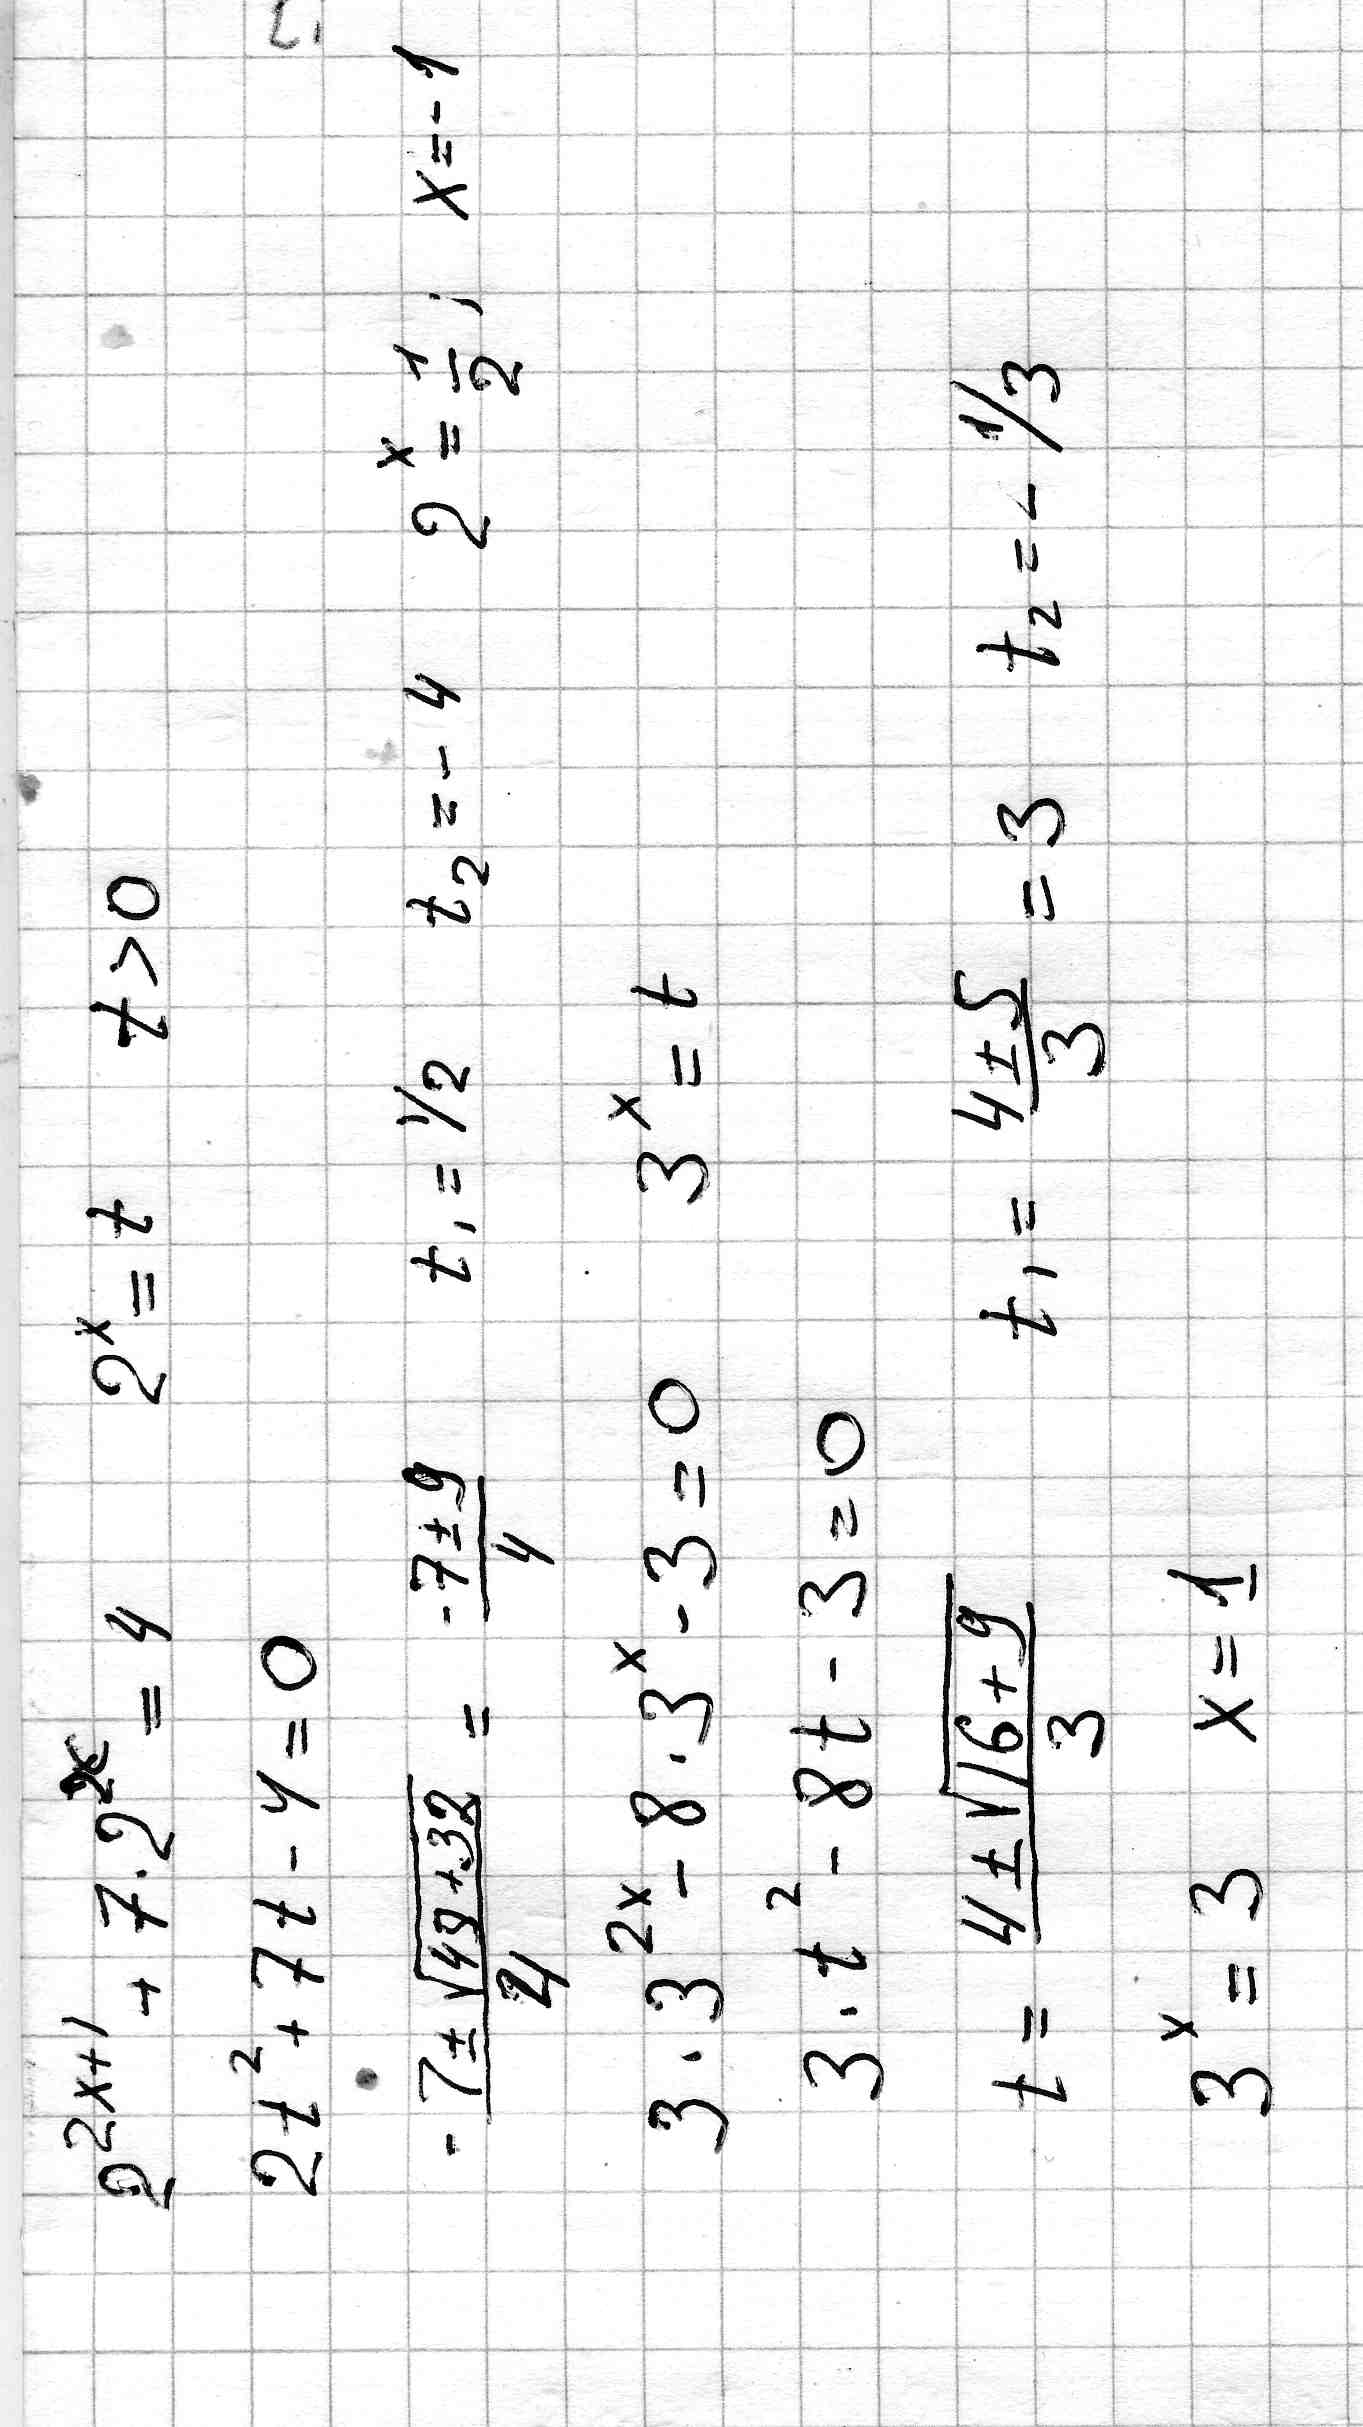 2^{2x+1} + 7·2^x = 4 2^x = t t > 0
2t^2 + 7t - 4 = 0
-7±√49+32/4 = -7±9/4 t_1 = 1/2 t_2 = -4 2^x = 1/2; x = -1
3·3^{2x} - 8·3^x - 3 = 0 3^x = t
3·t^2 - 8t - 3 = 0
t = 4±√16+9/3 t_1 = 4±5/3 = 3 t_2 = -1/3
3^x = 3 x = 1